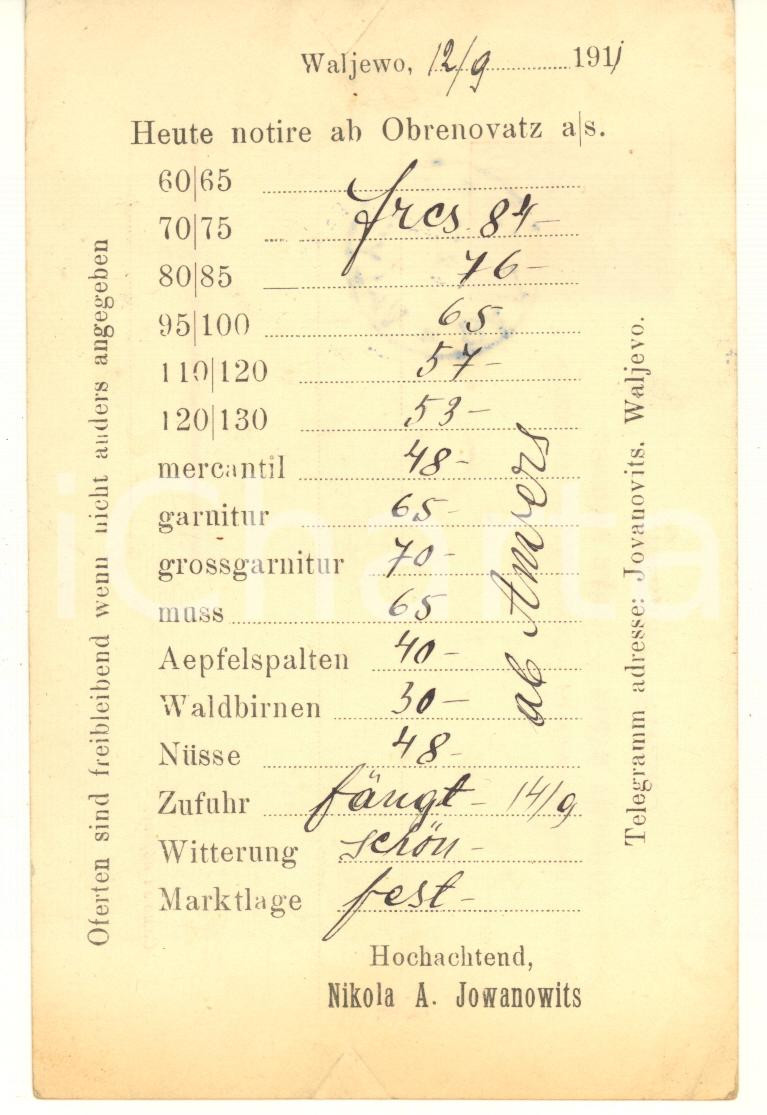 Waljewo, 12/9 1911
Heute notire ab Obrenovatz a|s.
60|65
70|75 frcs 84-
80|85 76-
95|100 65
110|120 57-
120|130 53-
mercantil 48-
garnitur 65-
grossgarnitur 70-
muss 65
Aepfelspalten 40-
Waldbirnen 30-
Nüsse 48-
Zufuhr fängt - 14/9
Witterung schön -
Marktlage fest -
ab Anvers
Hochachtend,
Nikola A. Jowanowits
Oferten sind freibleibend wenn nicht anders angegeben
Telegramm adresse: Jovanovits. Waljevo.
iCharta